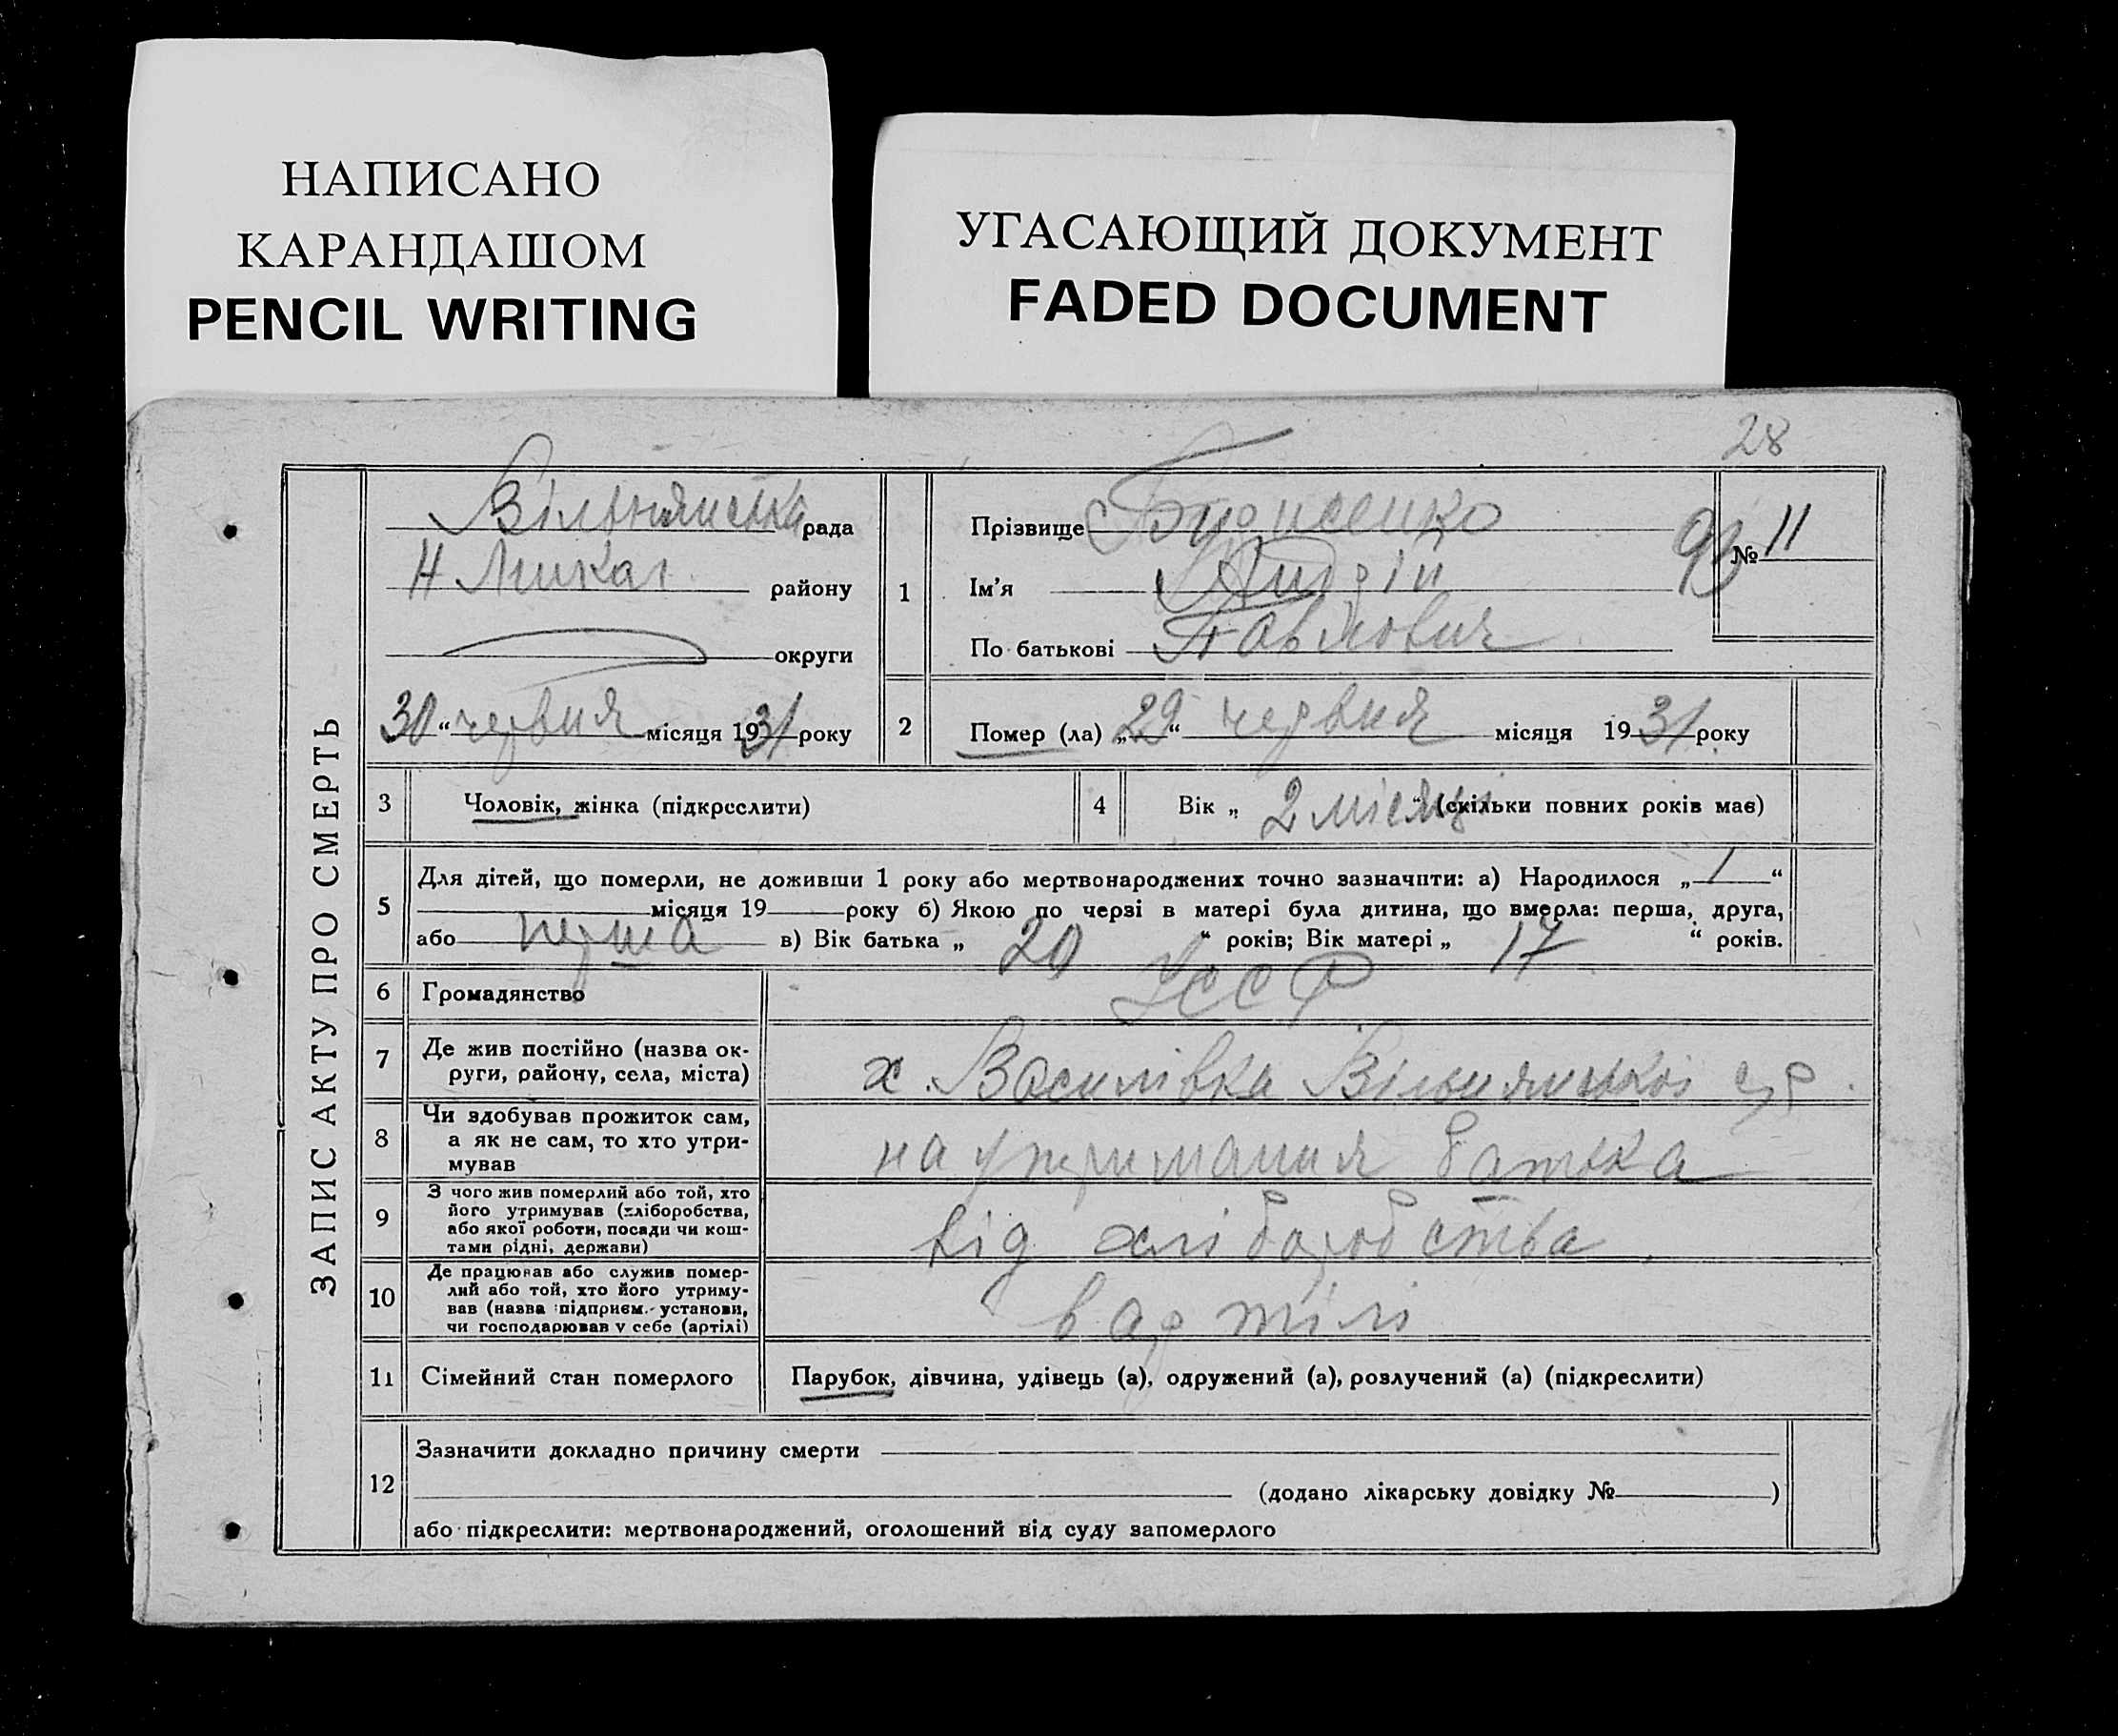 НАПИСАНО
КАРАНДАШОМ
PENCIL WRITING
УГАСАЮЩИЙ ДОКУМЕНТ
FADED DOCUMENT
28
ЗАПИС АКТУ ПРО СМЕРТЬ
рада
району
округи
30 “ червня місяця 1931 року
1
Прізвище
Ім’я Андрій
По батькові Павлович
93
№ 11
2 Помер (ла) „29“ червня місяця 1931 року
3 Чоловік, жінка (підкреслити)
4 Вік „ 2 місяці “ (скільки повних років має)
5 Для дітей, що померли, не доживши 1 року або мертвонароджених точно зазначити: а) Народилося „ 1 “
місяця 19 року б) Якою по черзі в матері була дитина, що вмерла: перша, друга,
або перша в) Вік батька „ 20 “ років; Вік матері „ 17 “ років.
6 Громадянство УССР
7 Де жив постійно (назва ок-
руги, району, села, міста)
х. Василівка
8 Чи здобував прожиток сам,
а як не сам, то хто утри-
мував
на утримання батька
9 З чого жив померлий або той, хто
його утримував (хліборобства,
або якої роботи, посади чи кош-
тами рідні, держави)
від хліборобства
10 Де працював або служив помер-
лий або той, хто його утриму-
вав (назва підприєм. установи,
чи господарював у себе (артілі)
в артілі
11 Сімейний стан померлого Парубок, дівчина, удівець (а), одружений (а), розлучений (а) (підкреслити)
12 Зазначити докладно причину смерти
(додано лікарську довідку № )
або підкреслити: мертвонароджений, оголошений від суду запомерлого